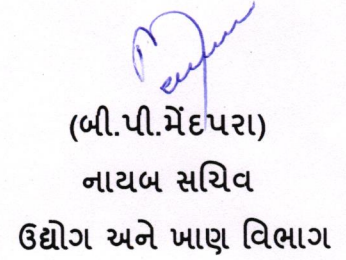 (બી.પી.મેંદપરા)
નાયબ સચિવ
ઉદ્યોગ અને ખાણ વિભાગ